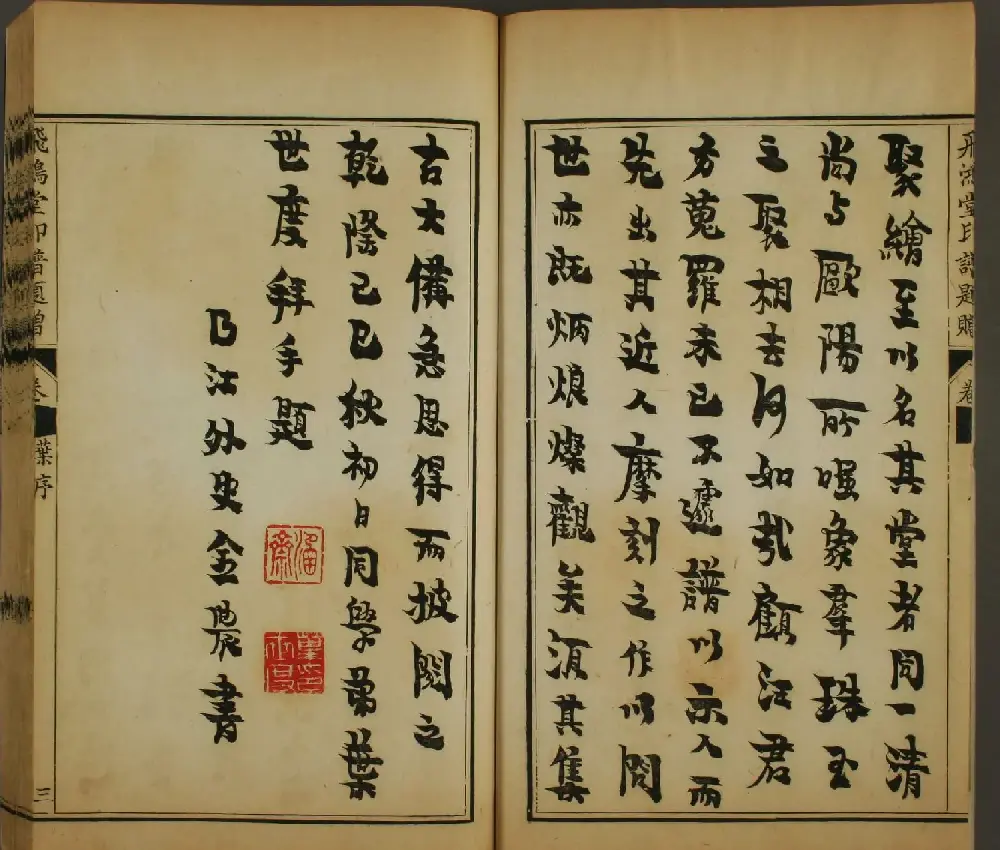 飛鴻堂印譜題贈 卷
聚繪至以名其堂者同一清
尚与歐陽所象犀珠玉
之聚相去何如哉顧汪君
方蒐羅未已不遽譜以示人而
先出其近人摩刻之作以問
世亦既炳烺燦觀矣須其集
古大備急思得而披閱之
乾隆己巳秋初日同學弟葉
世度拜手題
曲江外史金農書
飛鴻堂印譜題贈 卷 葉序 三